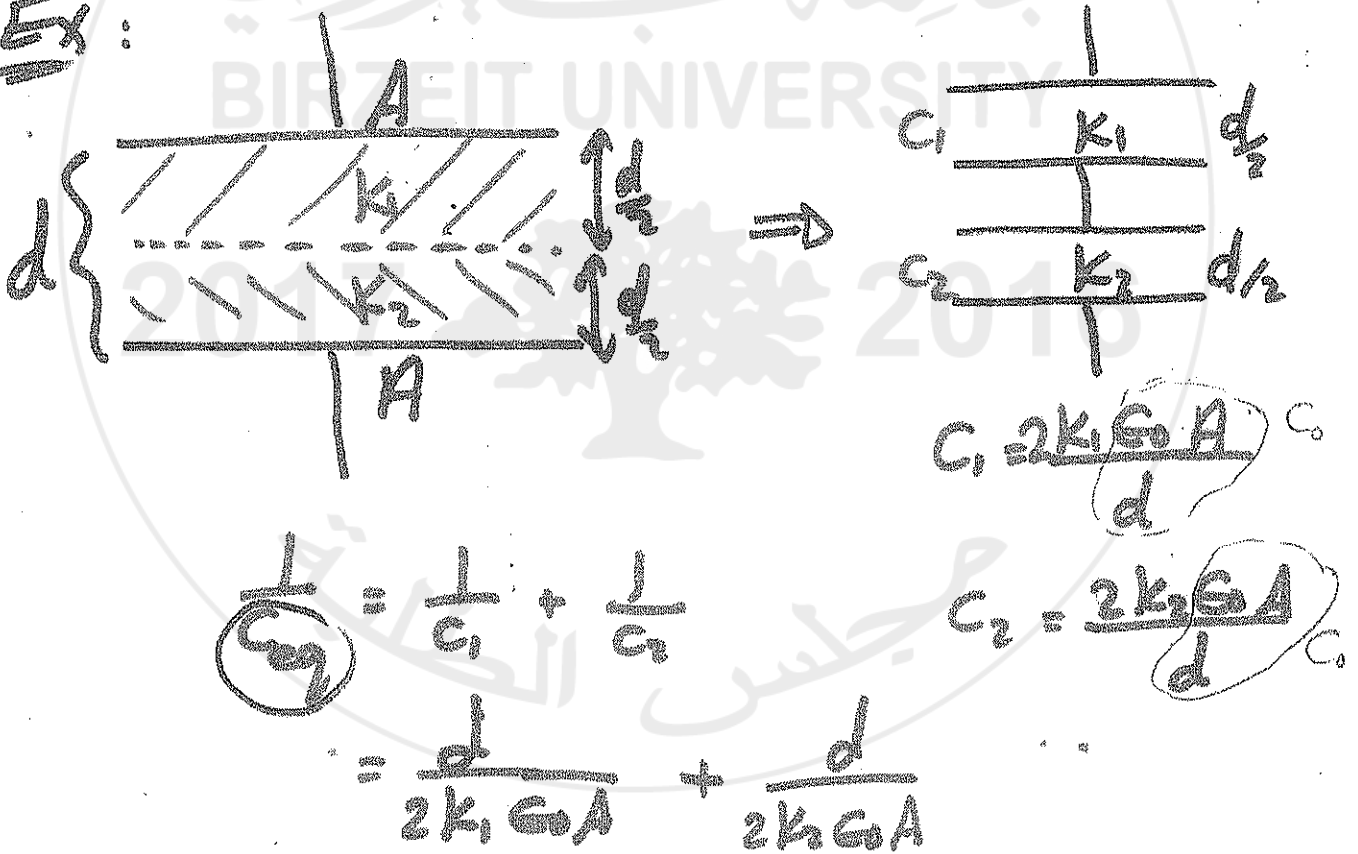 Ex :
BIRZEIT UNIVERSITY
2017 2016
A
K₁
d/2
d
K₂
d/2
A
⇒
C₁ K₁ d/2
C₂ K₂ d/2
C₁ = 2K₁ ϵ₀ A / d C₀
C₂ = 2K₂ ϵ₀ A / d C₀
1/Ceq = 1/C₁ + 1/C₂
= d / 2K₁ ϵ₀ A + d / 2K₂ ϵ₀ A